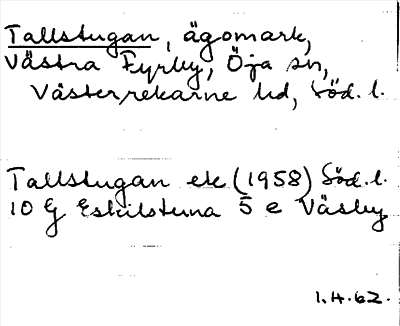 Tallstugan, ägomark,
Västra Fyrby, Öja sn,
Västerrekarne hd, Söd. l.
Tallstugan ek (1958) Söd. l.
10 G Eskilstuna 5 e Väsby
1.4.62.